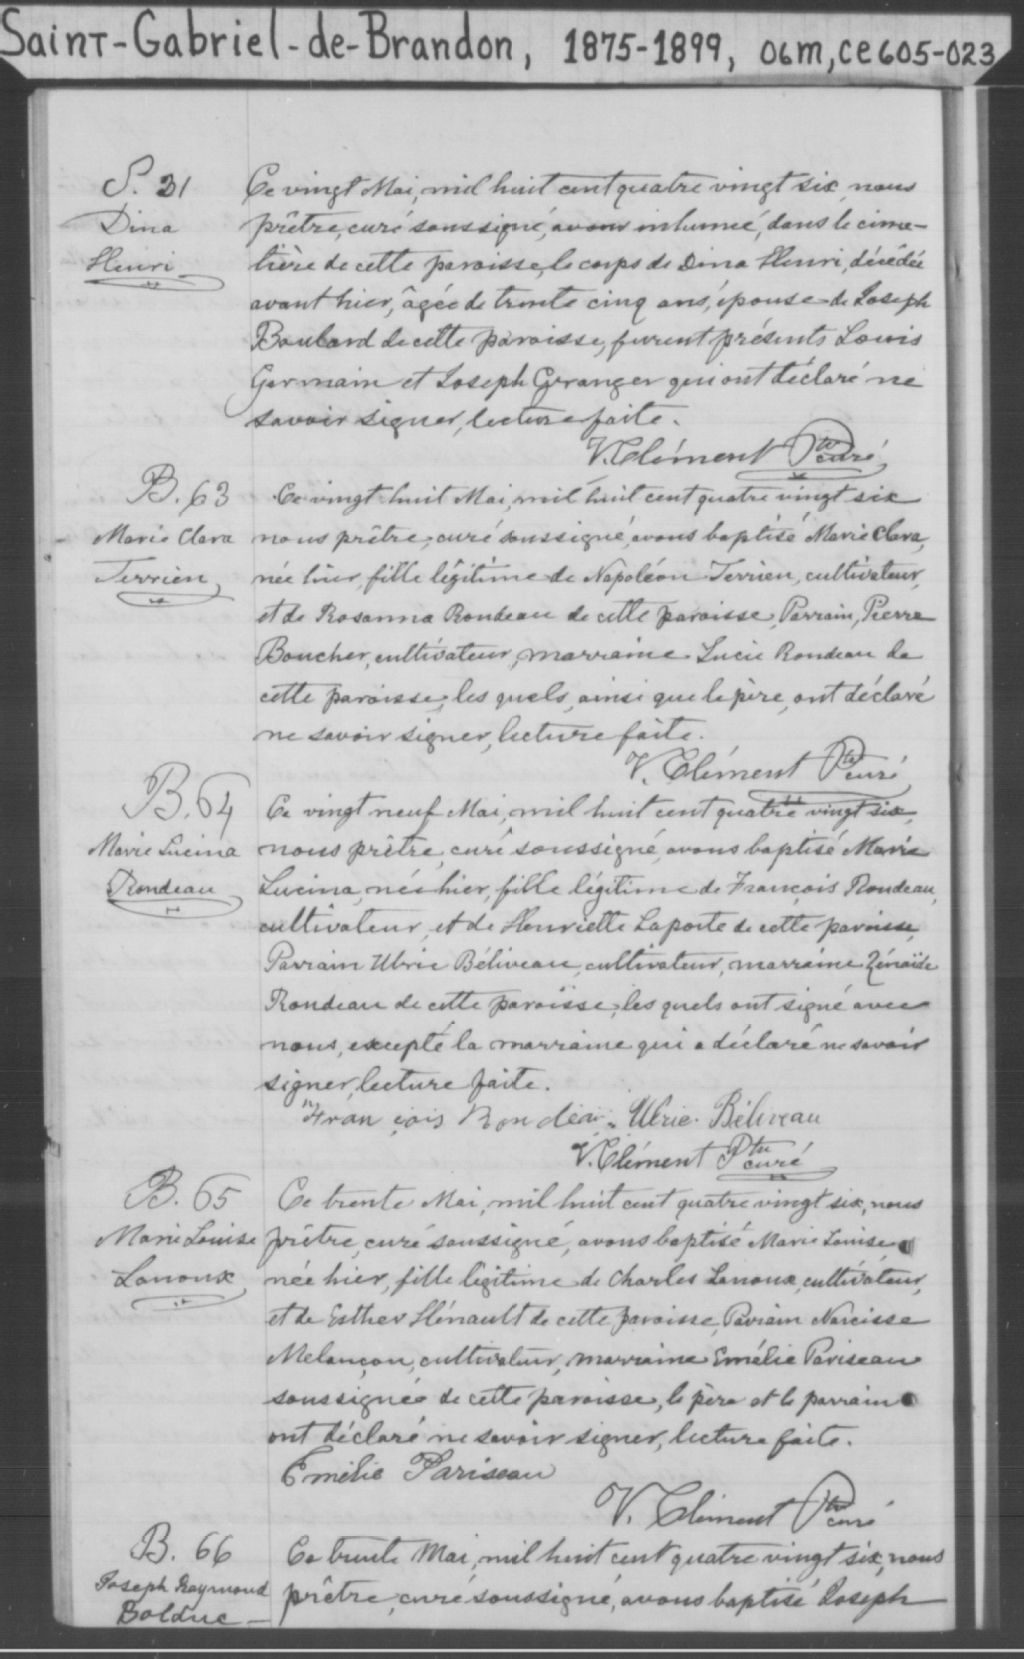 Saint-Gabriel-de-Brandon, 1875-1899, 06m,ce605-023
S. 31
Dina
Henri
Ce vingt Mai, mil huit cent quatre vingt six, nous
prêtre, curé soussigné, avons inhumé, dans le cime-
tière de cette paroisse, le corps de Dina Henri, décédée
avant hier, âgée de trente cinq ans, épouse de Joseph
Boulard de cette paroisse, furent présents Louis
Germain et Joseph Granger qui ont déclaré ne
savoir signer, lecture faite.
V. Clément Ptre curé
B. 63
Marie Clara
Terrien
Ce vingt-huit Mai, mil huit cent quatre vingt six
nous prêtre, curé soussigné, avons baptisé Marie Clara,
née hier, fille légitime de Napoléon Terrien, cultivateur,
et de Rosanna Rondeau de cette paroisse, Parrain, Pierre
Boucher, cultivateur, marraine Lucie Rondeau de
cette paroisse, les quels, ainsi que le père, ont déclaré
ne savoir signer, lecture faite.
V. Clément Ptre curé
B. 64
Marie Lucina
Rondeau
Ce vingt neuf Mai, mil huit cent quatre vingt six,
nous prêtre, curé soussigné, avons baptisé Marie
Lucina, née hier, fille légitime de François Rondeau,
cultivateur, et de Henriette Laporte de cette paroisse,
Parrain Ulric Béliveau, cultivateur, marraine Zénaïde
Rondeau de cette paroisse, les quels ont signé avec
nous, excepté la marraine qui a déclaré ne savoir
signer, lecture faite.
François Rondeau Ulric Béliveau
V. Clément Ptre curé
B. 65
Marie Louise
Lanoux
Ce trente Mai, mil huit cent quatre vingt six, nous
prêtre, curé soussigné, avons baptisé Marie Louise
née hier, fille légitime de Charles Lanoux, cultivateur,
et de Esther Hénault de cette paroisse, Parrain Narcisse
Melançon, cultivateur, marraine Emélie Pariseau
soussignée de cette paroisse, le père et le parrain
ont déclaré ne savoir signer, lecture faite.
Emélie Pariseau
V. Clément Ptre curé
B. 66
Joseph Raymond
Bolduc
Ce trente Mai, mil huit cent quatre vingt six, nous
prêtre, curé soussigné, avons baptisé Joseph